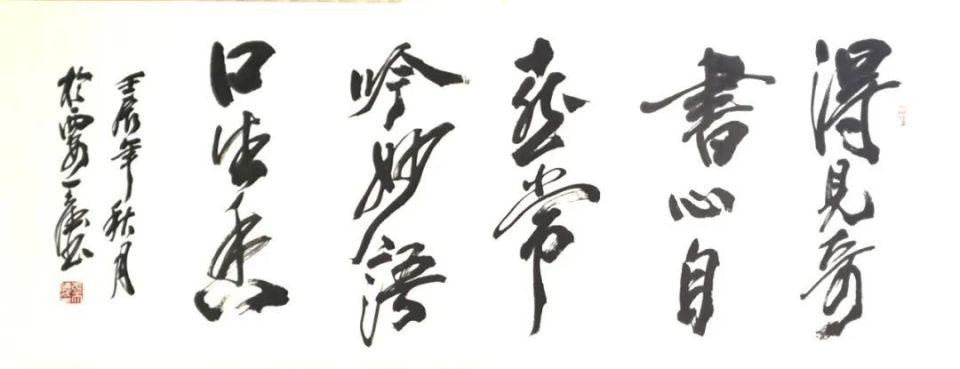 得見奇
書心自
常
吟妙語
口生香
壬辰年秋月
於西安一